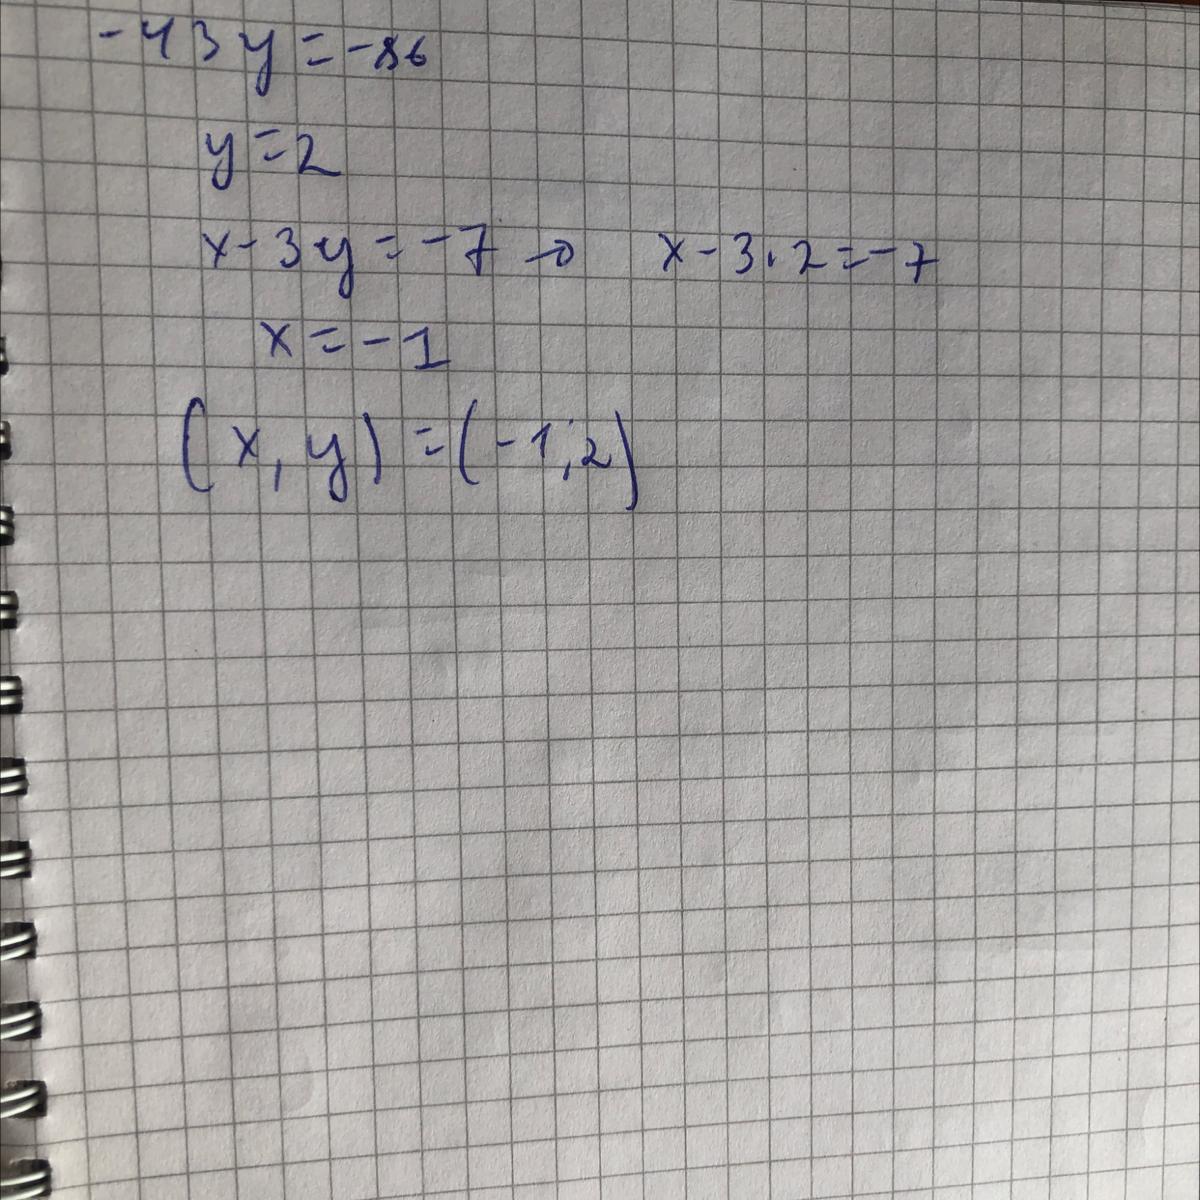 -43y=-86
y=2
x-3y=-7 → x-3·2=-7
x=-1
(x,y)=(-1,2)